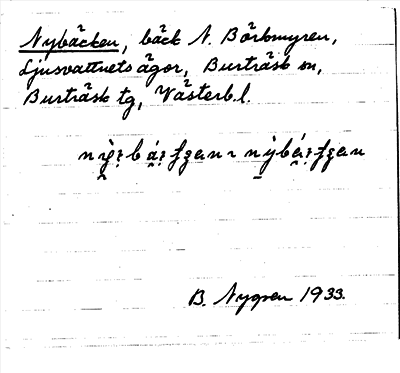 Nybäcken, bäck N. Börkmyren,
Ljusvattnets ägor, Burträsk sn,
Burträsk tg, Västerb.l.
B. Nygren 1933.